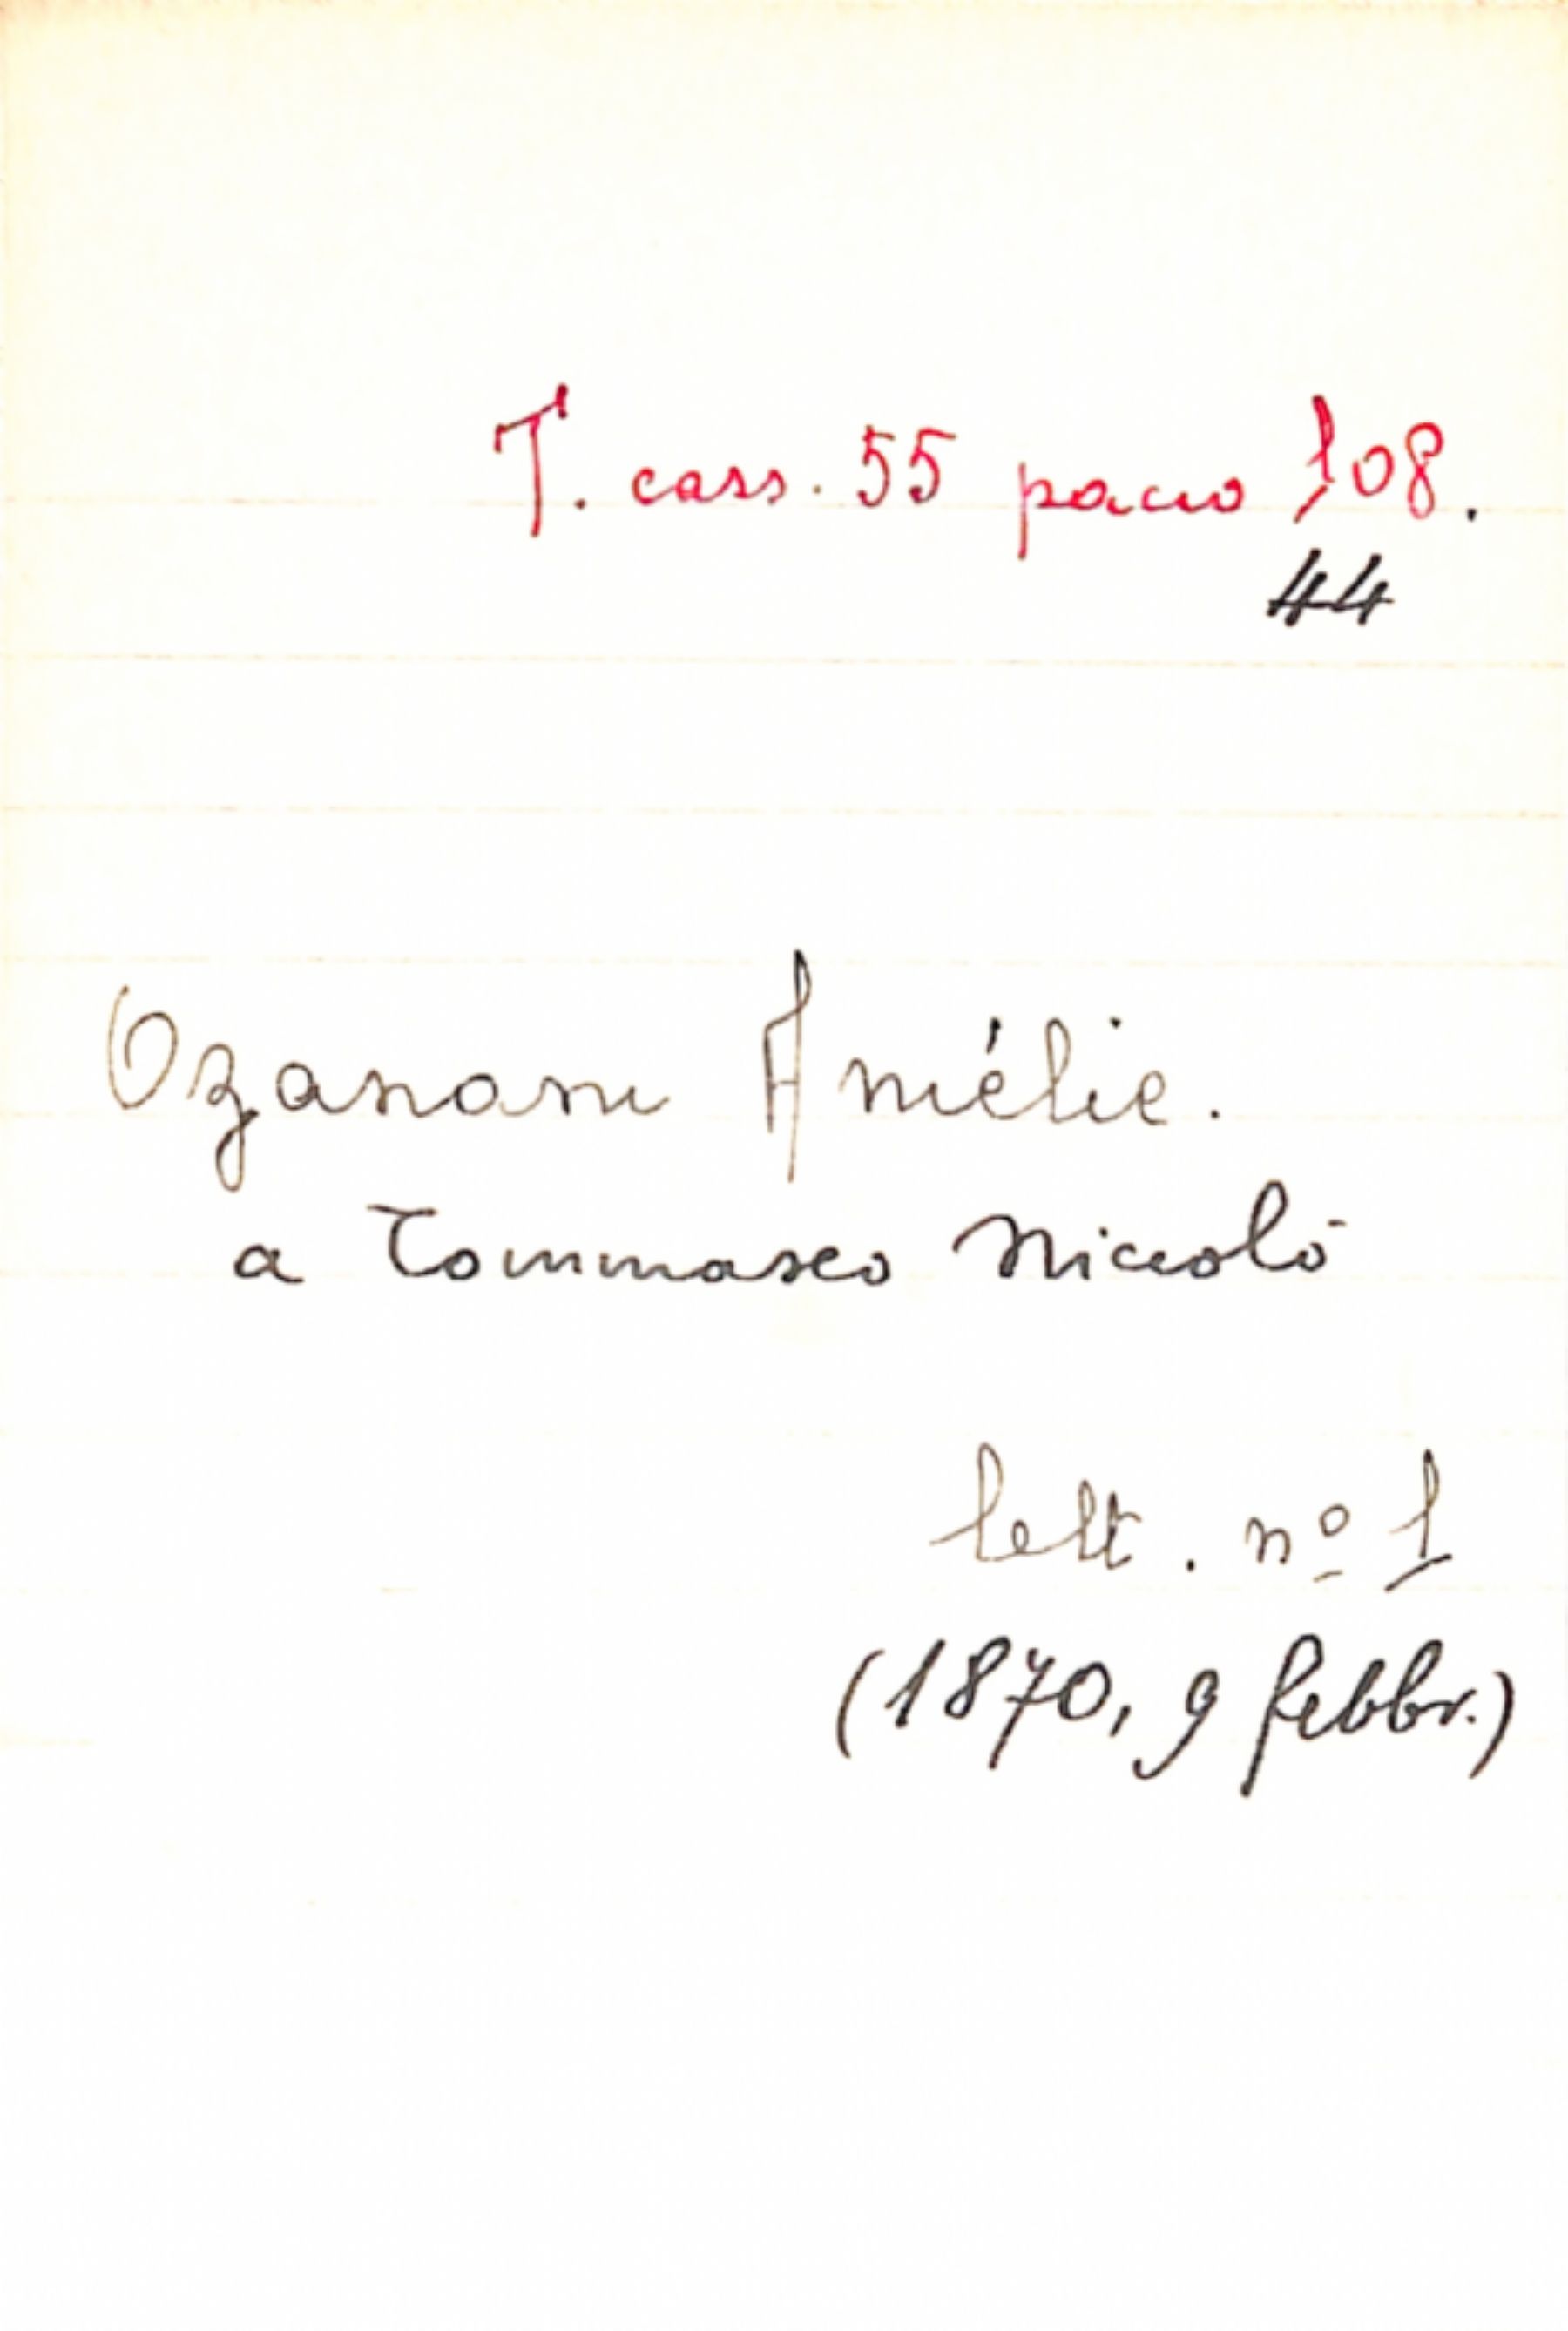 T. cass. 55 pacco 108.
44
Ozanam Amélie.
a Tommaseo Niccolò
lett. nº 1
(1870, 9 febbr.)